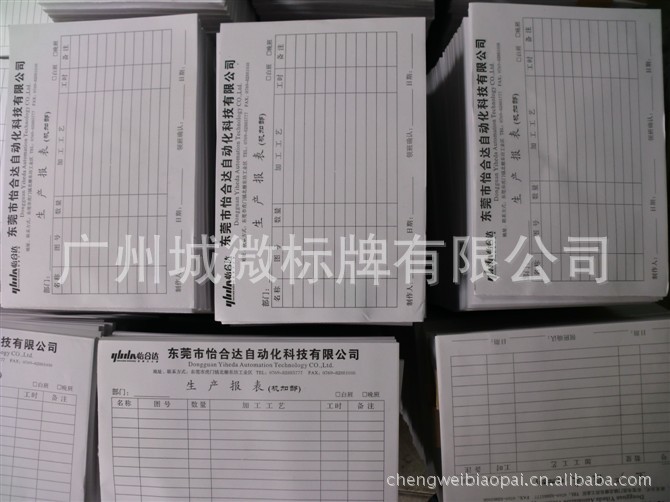 东莞市怡合达自动化科技有限公司
Dongguan Yiheda Automation Technology CO.,Ltd.
生产报表(机加部)
□白班 □晚班
工时 备注
加工工艺
数量
图号
日期:
领班确认:
制作人:
怡合达 东莞市怡合达自动化科技有限公司
Dongguan Yiheda Automation Technology CO.,Ltd.
生产报表(机加部)
部门:
□白班 □晚班
名称 图号 数量 加工工艺 工时 备注
日期:
领班确认:
东莞市怡合达自动化科技有限公司
Dongguan Yiheda Automation Technology CO.,Ltd.
生产报表(机加部)
□白班 □晚班
图号 数量 加工工艺 工时 备注
日期:
领班确认:
制作人:
广州城微标牌有限公司
技有限公司
□白班 □晚班
工时 备注
怡合达 东莞市怡合达自动化科技有限公司
Dongguan Yiheda Automation Technology CO.,Ltd.
生产报表(机加部)
部门: □白班 □晚班
名称 图号 数量 加工工艺 工时 备注
日期:
领班确认:
chengweibiaopai.cn.alibaba.com